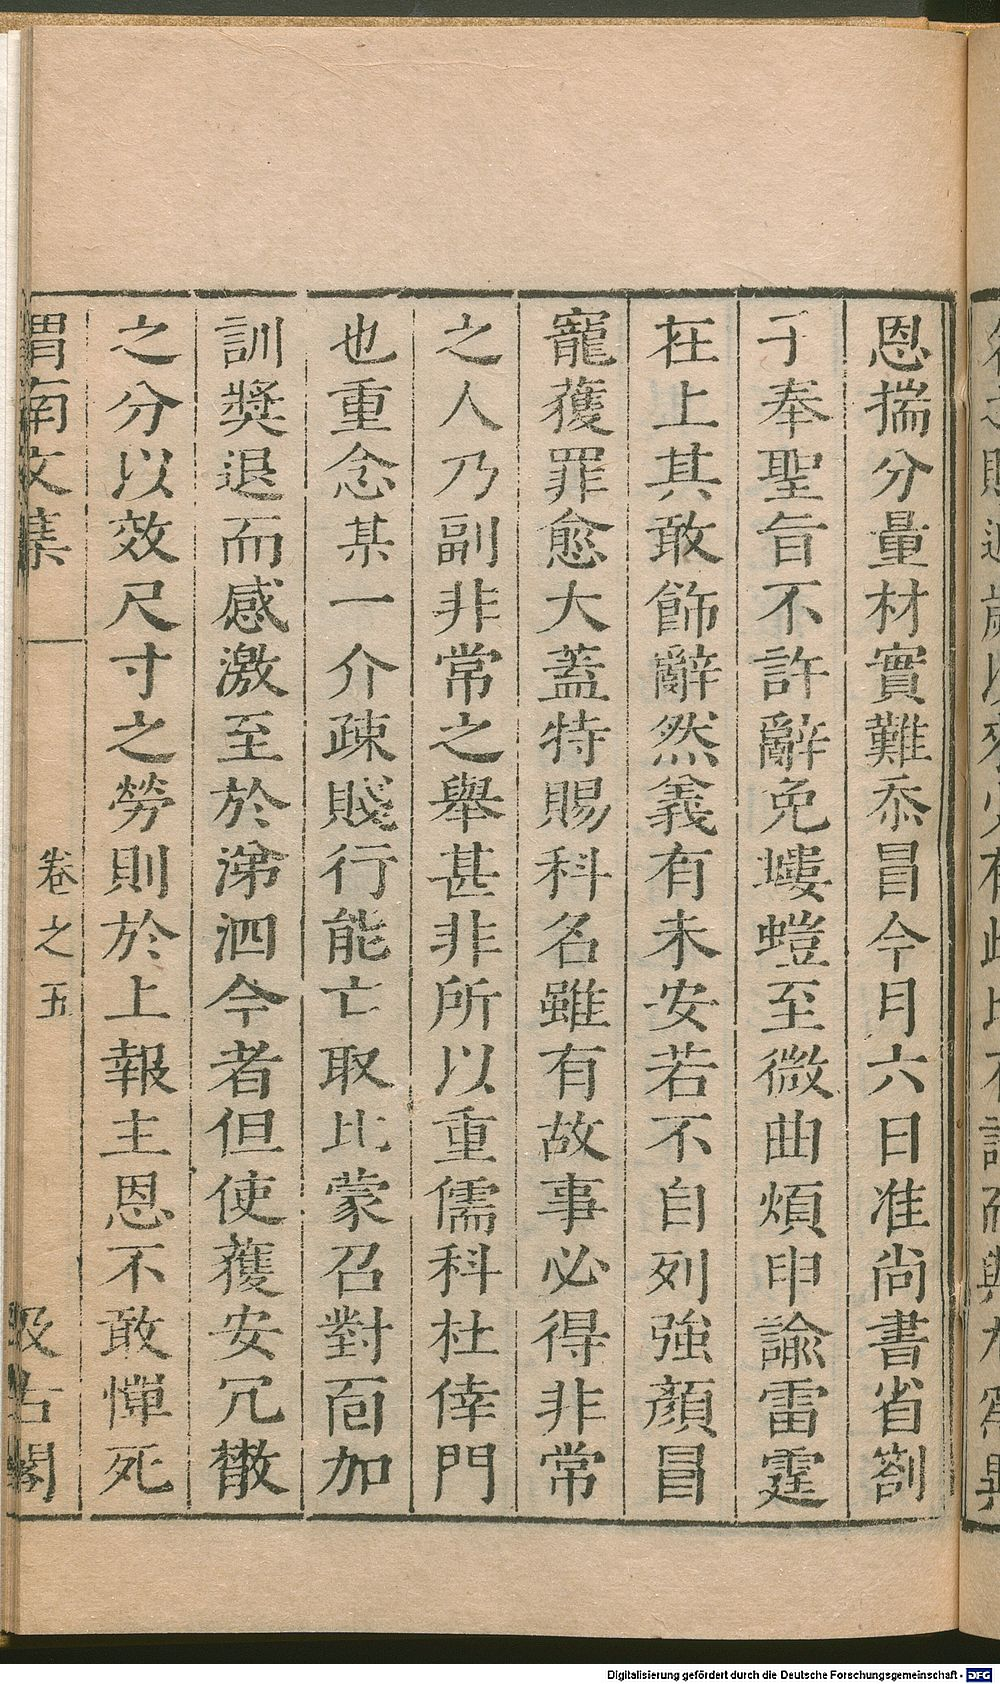 恩揣分量材實難忝冒今月六日准尚書省劄
子奉聖旨不許辭免螻螘至微曲煩申諭雷霆
在上其敢飾辭然義有未安若不自列強顏冒
寵獲罪愈大蓋特賜科名雖有故事必得非常
之人乃副非常之舉甚非所以重儒科杜倖門
也重念某一介疎賤行能亡取比蒙召對面加
訓奬退而感激至於涕泗今者但使獲安冗散
之分以效尺寸之勞則於上報主恩不敢憚死
渭南文集 卷之五 汲古閣
Digitalisierung gefördert durch die Deutsche Forschungsgemeinschaft - DFG